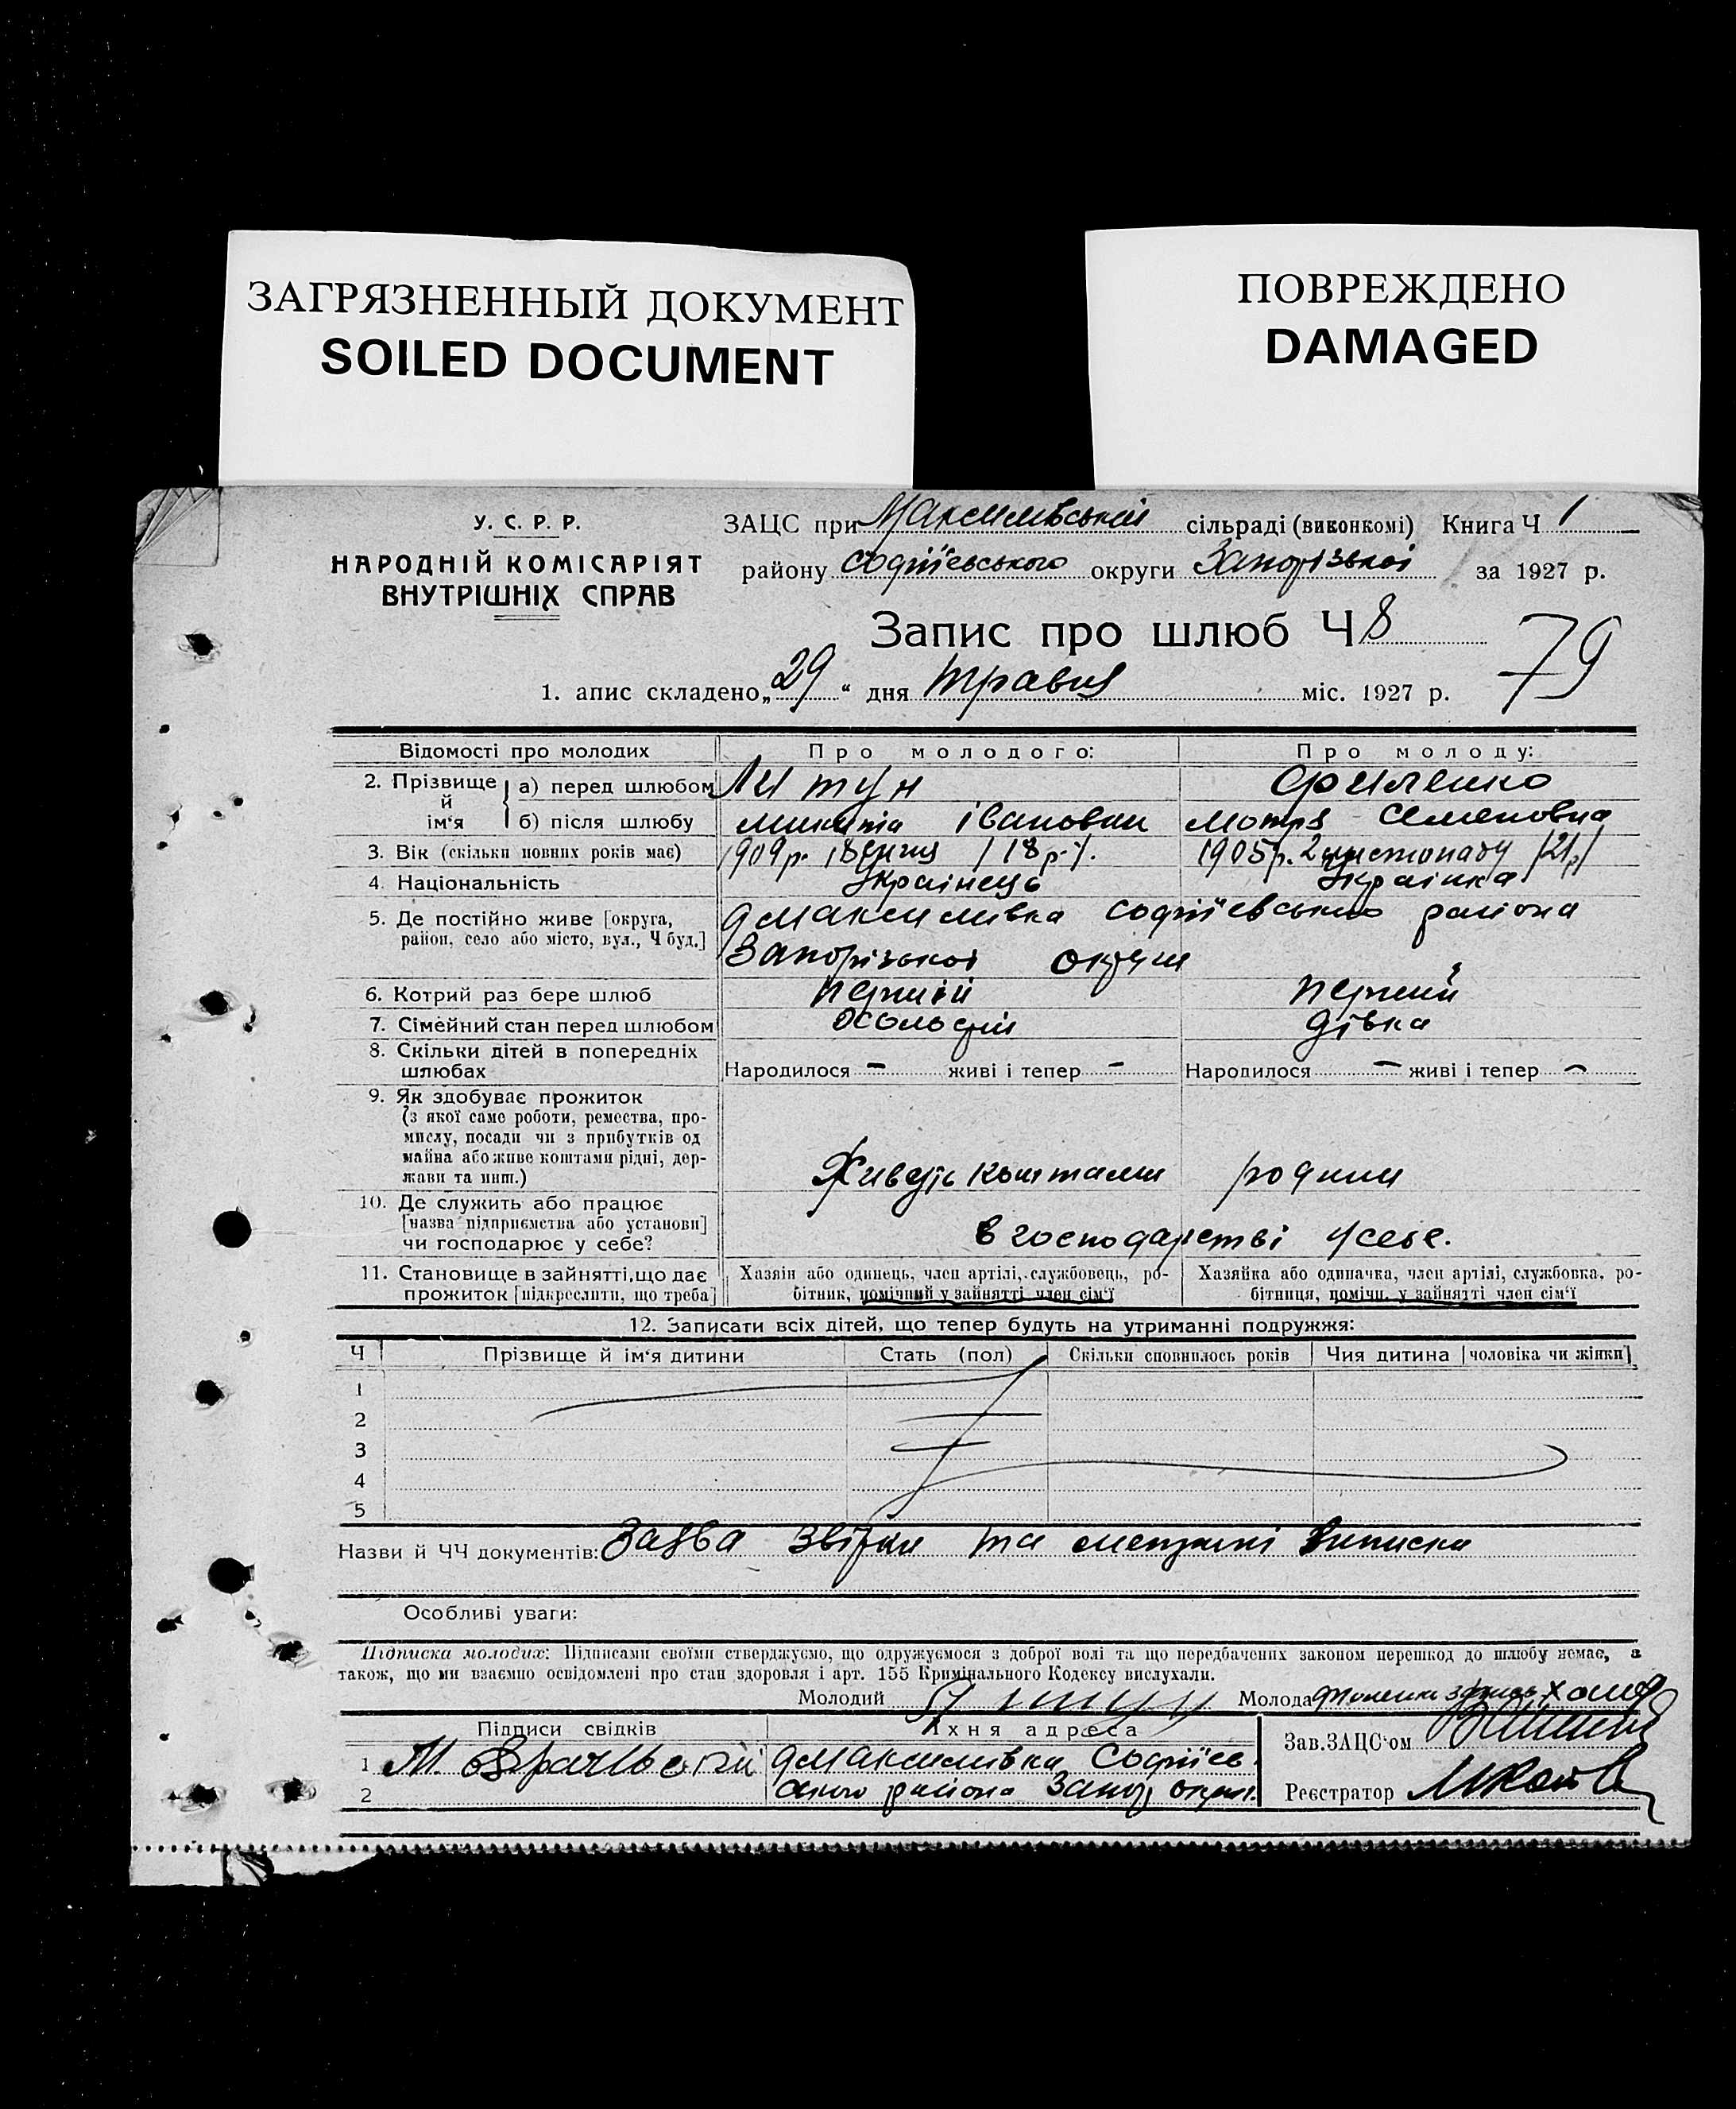 ЗАГРЯЗНЕННЫЙ ДОКУМЕНТ
SOILED DOCUMENT
ПОВРЕЖДЕНО
DAMAGED
У. С. Р. Р.
НАРОДНІЙ КОМІСАРІЯТ
ВНУТРІШНІХ СПРАВ
ЗАЦС при Максимівській сільраді (виконкомі) Книга Ч 1
району Софіївського округи Запорізької за 1927 р.
Запис про шлюб Ч 8
79
1. апис складено „29“ дня травня міс. 1927 р.
Відомості про молодих Про молодого: Про молоду:
2. Прізвище й ім‘я а) перед шлюбом Литун Филенко
б) після шлюбу Микита Іванович Мотря Семеновна
3. Вік (скільки повних років має) 1909 р. /18 р./. 1905 р. листопаду /21 р/
4. Національність Українець Українка
5. Де постійно живе [округа, район, село або місто, вул., Ч буд.] Максимівка Софіївського района
Запорізької округи
6. Котрий раз бере шлюб перший перший
7. Сімейний стан перед шлюбом дівка
8. Скільки дітей в попередніх шлюбах Народилося - живі і тепер - Народилося - живі і тепер -
9. Як здобуває прожиток
(з якої саме роботи, ремества, про-
мислу, посади чи з прибутків од
майна або живе коштами рідні, дер-
жави та инш.) Живуть коштами родини
10. Де служить або працює
[назва підприємства або установи]
чи господарює у себе? в господарстві у себе.
11. Становище в зайнятті, що дає Хазяїн або одинець, член артілі, службовець, ро- Хазяйка або одиначка, член артілі, службовка, ро-
прожиток [підкреслити, що треба] бітник, помічний у зайнятті член сім‘ї бітниця, помічн. у зайнятті член сім‘ї
12. Записати всіх дітей, що тепер будуть на утриманні подружжя:
Ч Прізвище й ім‘я дитини Стать (пол) Скільки сповнилось років Чия дитина [чоловіка чи жінки]
1
2
3
4
5
Назви й ЧЧ документів: Заява звірки та метричні виписки
Особливі уваги:
Підписка молодих: Підписами своїми стверджуємо, що одружуємося з доброї волі та що передбачених законом перешкод до шлюбу немає, а
також, що ми взаємно освідомлені про стан здоровля і арт. 155 Кримінального Кодексу вислухали.
Молодий Молода
Підписи свідків Їхня адреса
Зав. ЗАЦС‘ом
1 М. Максимівка Софіїв-
2 ського района Запор округи.
Реєстратор